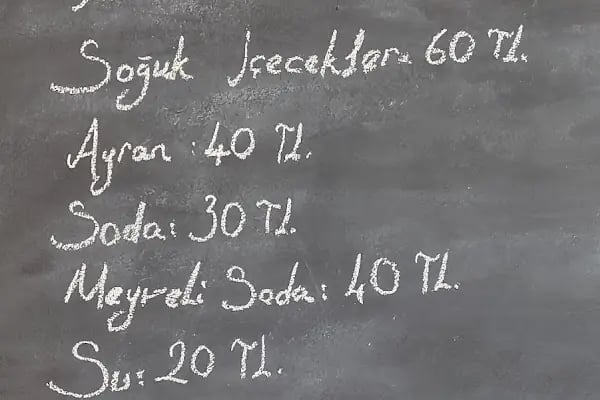 Soğuk İçecekler 60 TL.
Ayran : 40 TL.
Soda: 30 TL.
Meyveli Soda: 40 TL.
Su: 20 TL.